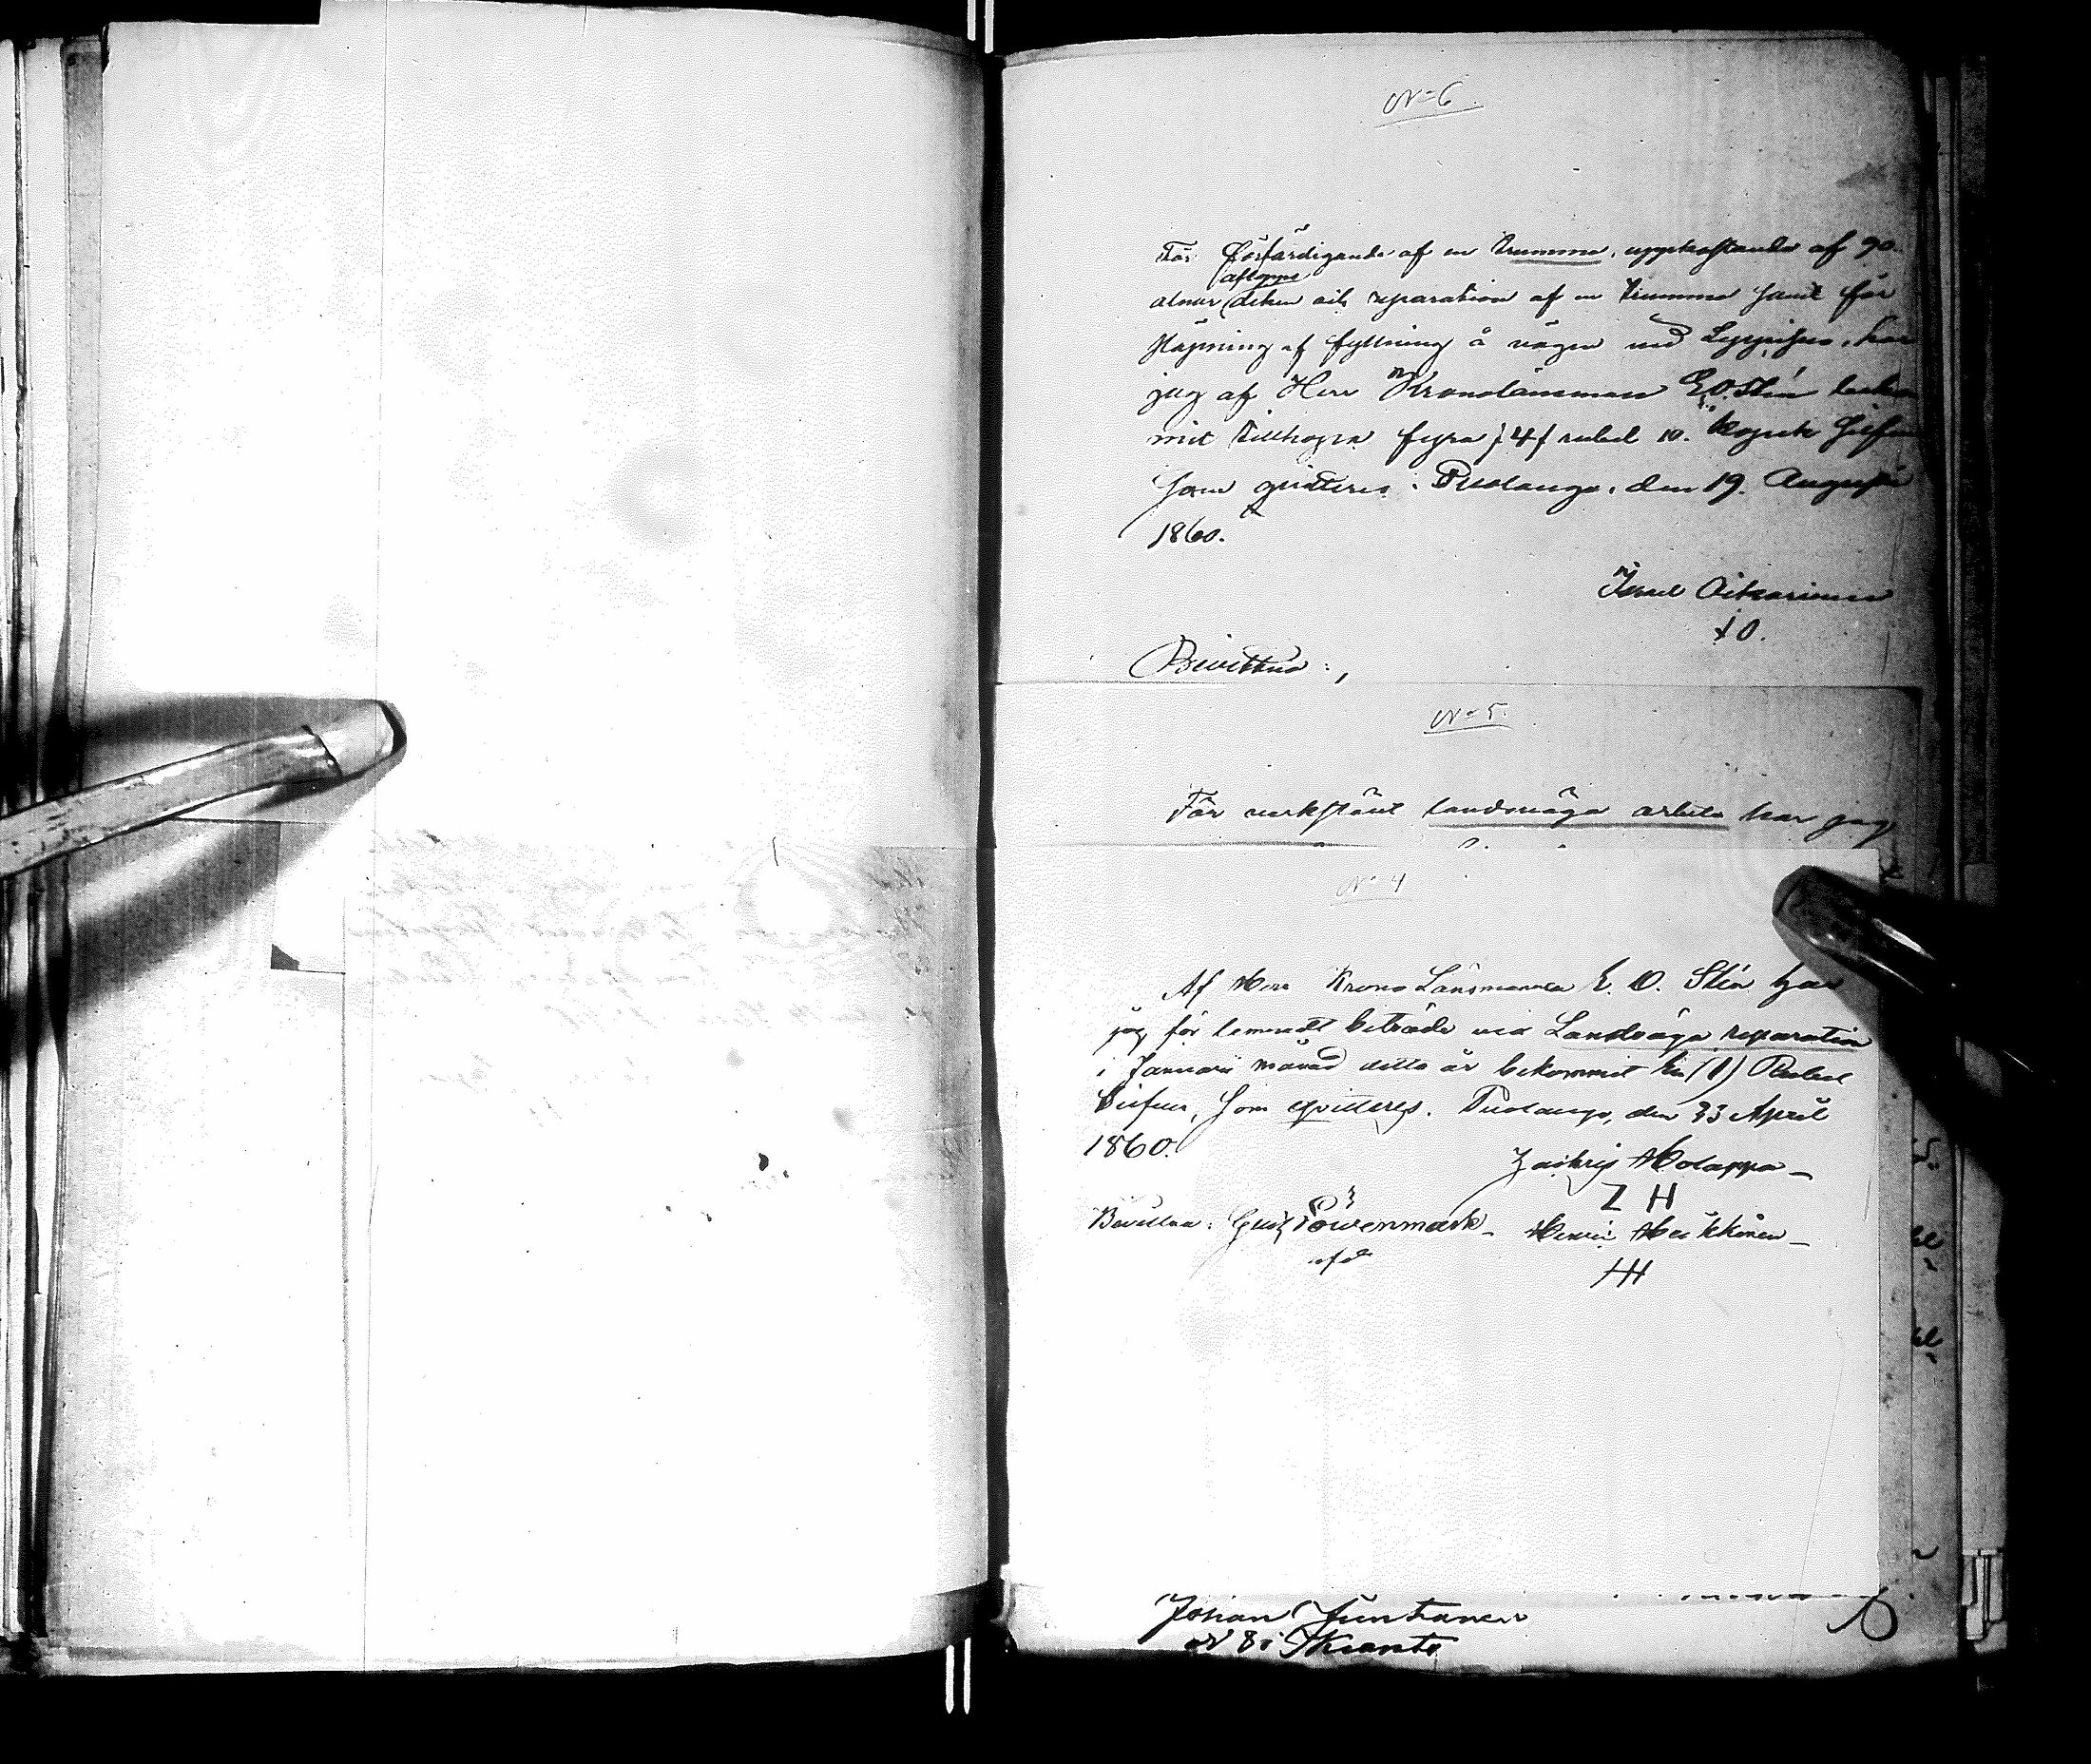 N=6
För förfärdigande af en trumma, uppkastande af 90.
aflopps
alnar diken och reparation af en trumma samt för
höjning af fyllning å vägen vid har
jag af Herr Kronolänsman E. O. Stén
mit tillhopa fyra /4/ rubel 10. kopek Silfver
som qvitteras. Puolango, den 19. Augusti
1860.
Israel Oikarinen
I O.
Bevittna:,
N=5.
För verkstäldt landsväga arbete har jag
N=4
Af Herr Krono Länsmannen E. O. Stén har
jag för lemnadt biträde vid Landsväga reparation
i Januarii månad detta år bekommit En (1) Rubel
Silfver, som qvitteras. Puolango, den 23 April
1860.
Zachris Holappa
Z H
Bevittna: Gust Löwenmark Henric Heikkinen
HH
Johan Juntunen
N 8 i Kianta